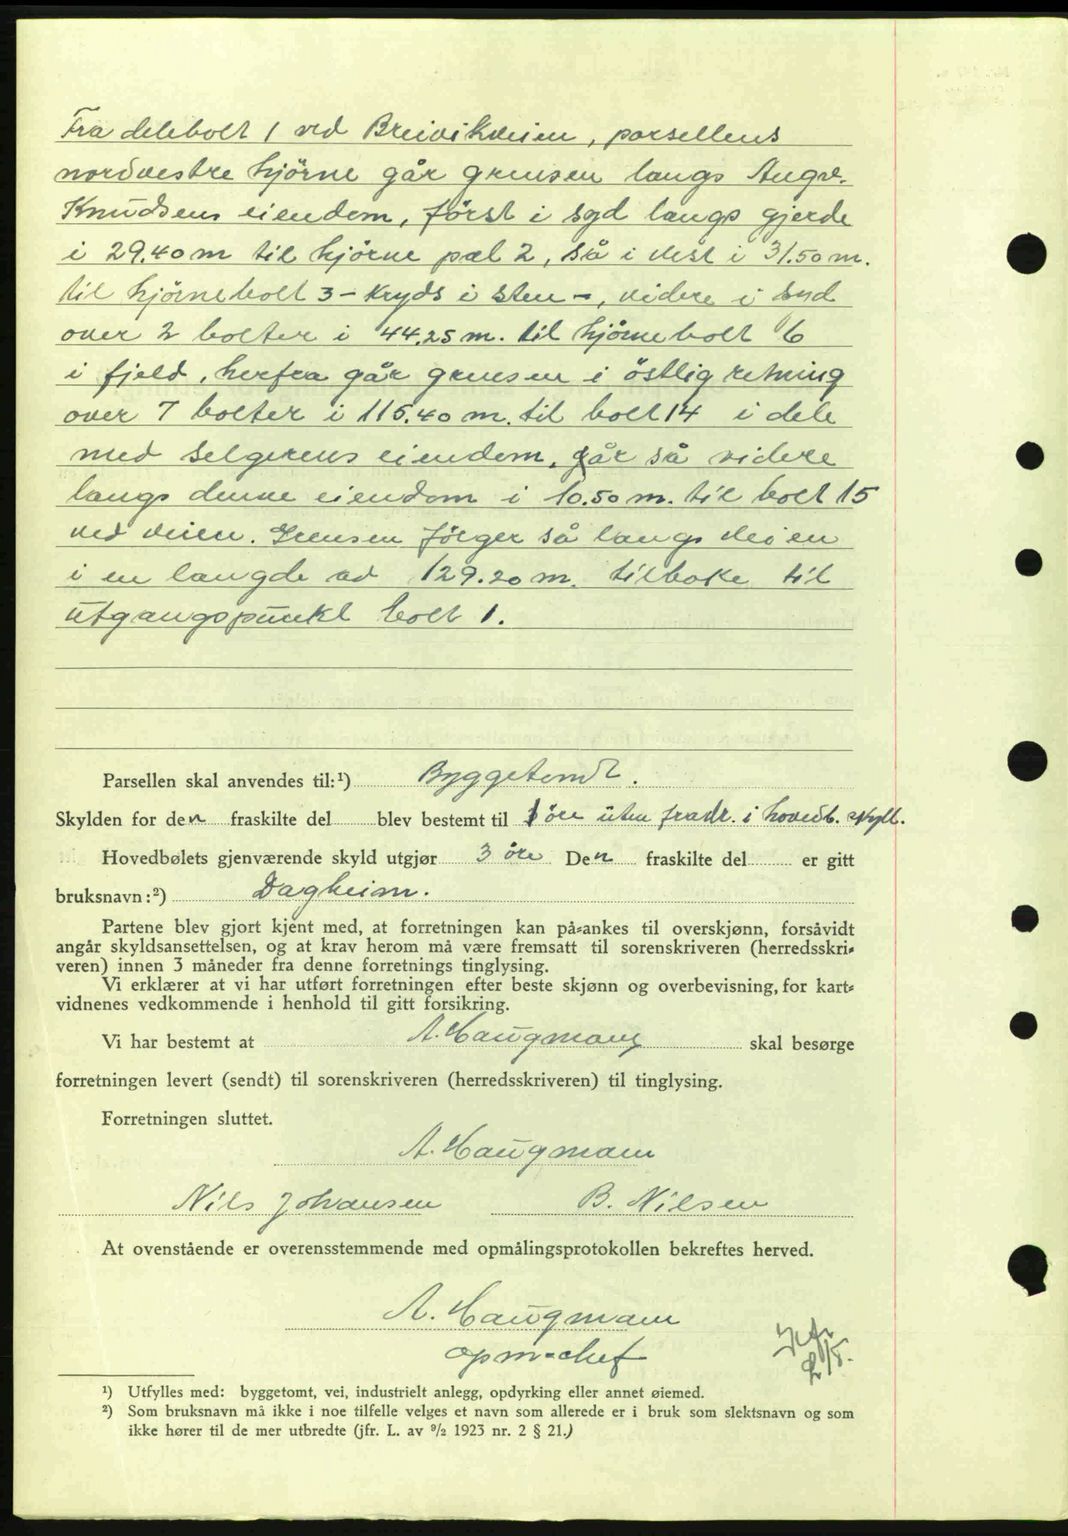 Fra delebolt 1 ved Breivikveien, parsellens
nordvestre hjörne går grensen langs Augv.
Knudsens eiendom, först i syd langs gjerde
i 29.40 m til hjörne pæl 2, så i vest i 31.50 m.
til hjörnebolt 3 - kryds i sten -, videre i syd
over 2 bolter i 44.25 m. til hjörnebolt 6
i fjeld, herfra går grensen i östlig retning
over 7 bolter i 115.40 m. til bolt 14 i dele
med selgerens eiendom, går så videre
langs denne eiendom i 10.50 m. til bolt 15
ved veien. Grensen fölger så langs veien
i en langde av 129.20 m. tilbake til
utgangspunkt bolt 1.
Parsellen skal anvendes til:¹) Byggetomt.
Skylden for den fraskilte del blev bestemt til 1 öre uten fradr. i hovedb. skyll.
Hovedbølets gjenværende skyld utgjør 3 öre Den fraskilte del er gitt
bruksnavn:²) Dagheim.
Partene blev gjort kjent med, at forretningen kan på-ankes til overskjønn, forsåvidt
angår skyldsansettelsen, og at krav herom må være fremsatt til sorenskriveren (herredsskri-
veren) innen 3 måneder fra denne forretnings tinglysing.
Vi erklærer at vi har utført forretningen efter beste skjønn og overbevisning, for kart-
vidnenes vedkommende i henhold til gitt forsikring.
Vi har bestemt at A. Haugmann skal besørge
forretningen levert (sendt) til sorenskriveren (herredsskriveren) til tinglysing.
Forretningen sluttet.
A. Haugmann
Nils Johansen B. Nilsen
At ovenstående er overensstemmende med opmålingsprotokollen bekreftes herved.
A. Haugmann
opm-chef
¹) Utfylles med: byggetomt, vei, industrielt anlegg, opdyrking eller annet øiemed.
²) Som bruksnavn må ikke i noe tilfelle velges et navn som allerede er i bruk som slektsnavn og som
ikke hører til de mer utbredte (jfr. L. av 9/2 1923 nr. 2 § 21.)